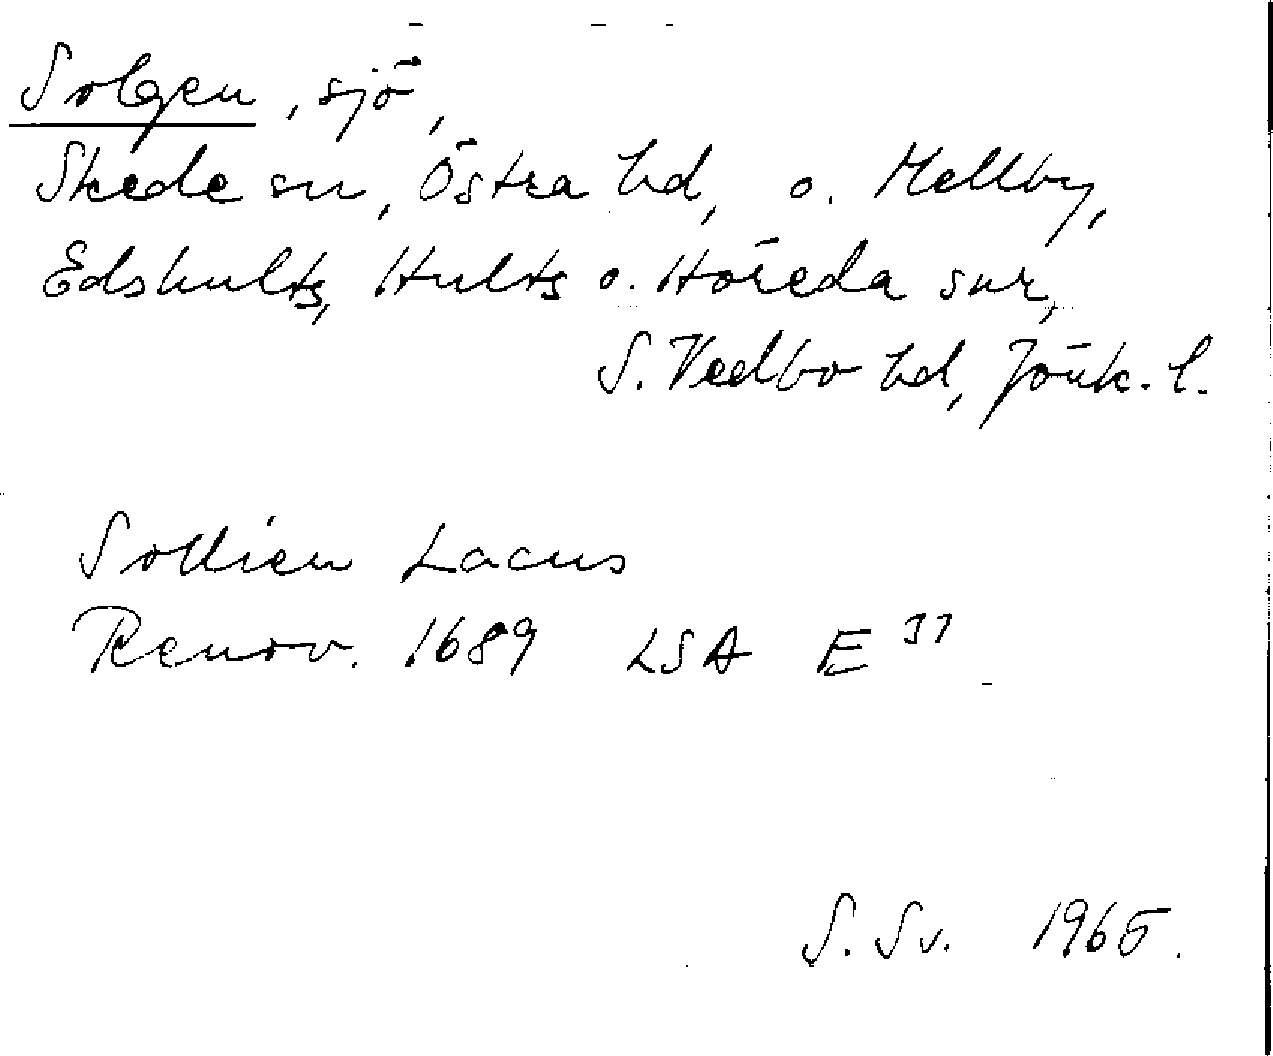 Solgen, sjö,
Skede sn, Östra hd, o. Mellby,
Edshults, Hults o. Höreda snr,
S. Vedbo hd, Jönk. l.
Sollien Lacus
Renov. 1689 LSA E 37
S. Sv. 1965.